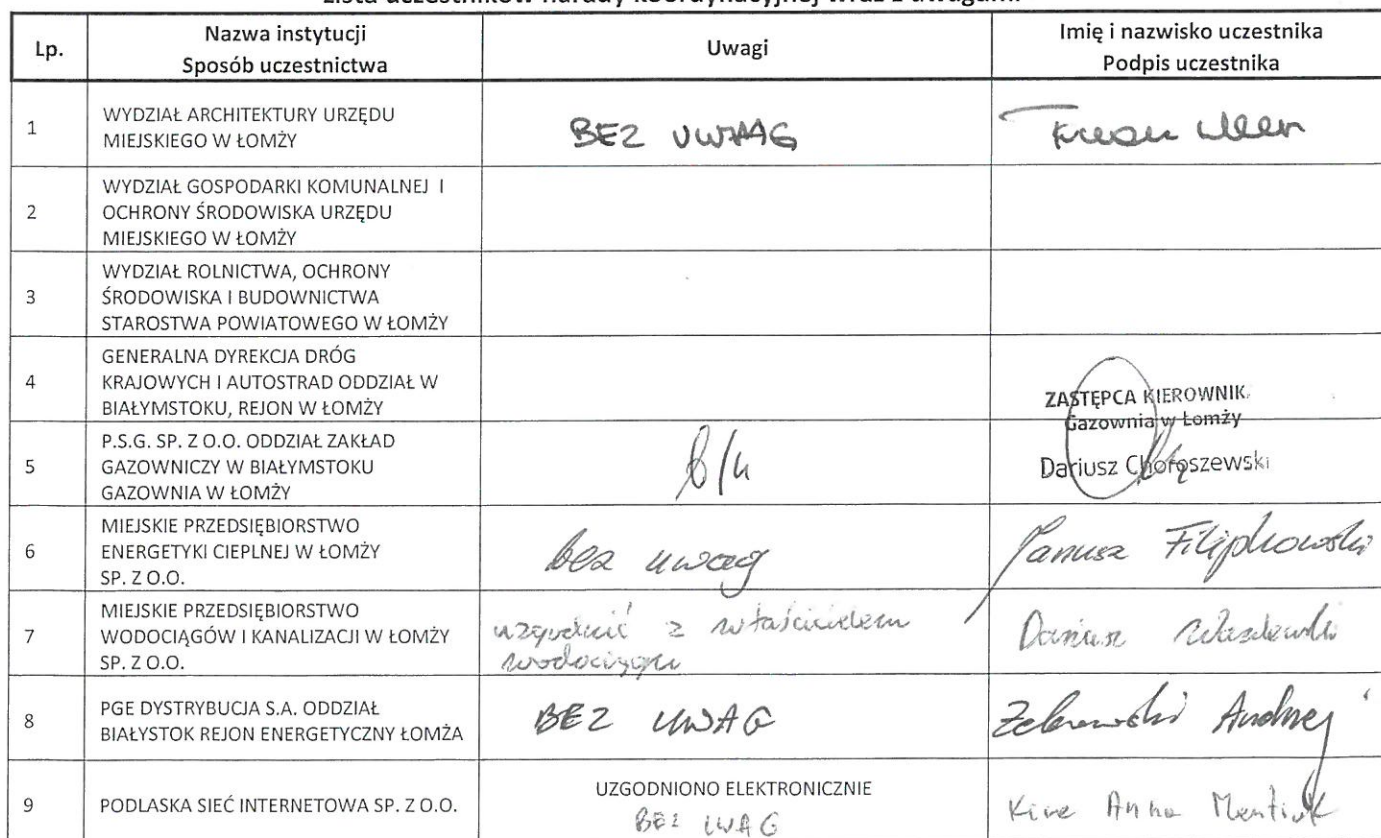 Lista uczestników narady koordynacyjnej wraz z uwagami
Lp.
Nazwa instytucji
Sposób uczestnictwa
Uwagi
Imię i nazwisko uczestnika
Podpis uczestnika
1
WYDZIAŁ ARCHITEKTURY URZĘDU
MIEJSKIEGO W ŁOMŻY
BEZ UWAAG
2
WYDZIAŁ GOSPODARKI KOMUNALNEJ I
OCHRONY ŚRODOWISKA URZĘDU
MIEJSKIEGO W ŁOMŻY
3
WYDZIAŁ ROLNICTWA, OCHRONY
ŚRODOWISKA I BUDOWNICTWA
STAROSTWA POWIATOWEGO W ŁOMŻY
4
GENERALNA DYREKCJA DRÓG
KRAJOWYCH I AUTOSTRAD ODDZIAŁ W
BIAŁYMSTOKU, REJON W ŁOMŻY
5
P.S.G. SP. Z O.O. ODDZIAŁ ZAKŁAD
GAZOWNICZY W BIAŁYMSTOKU
GAZOWNIA W ŁOMŻY
b/u
ZASTĘPCA KIEROWNIK
Gazownia w Łomży
Dariusz Choroszewski
6
MIEJSKIE PRZEDSIĘBIORSTWO
ENERGETYKI CIEPLNEJ W ŁOMŻY
SP. Z O.O.
bez uwag
Janusz Filipkowski
7
MIEJSKIE PRZEDSIĘBIORSTWO
WODOCIĄGÓW I KANALIZACJI W ŁOMŻY
SP. Z O.O.
uzgodnić z właścicielem
wodociągu
Dariusz
8
PGE DYSTRYBUCJA S.A. ODDZIAŁ
BIAŁYSTOK REJON ENERGETYCZNY ŁOMŻA
BEZ UWAG
Żebrowski Andrzej
9
PODLASKA SIEĆ INTERNETOWA SP. Z O.O.
UZGODNIONO ELEKTRONICZNIE
BEZ UWAG
Anna